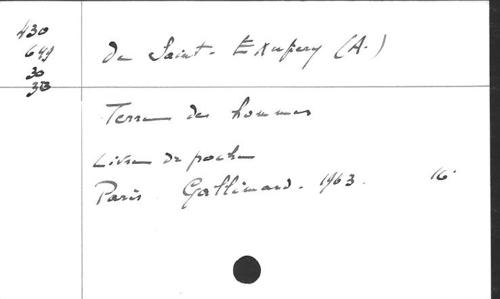 430
649
30
313
de Saint-Exupery (A.)
Terre des hommes
Livre de poche
Paris Gallimard. 1963. 16°